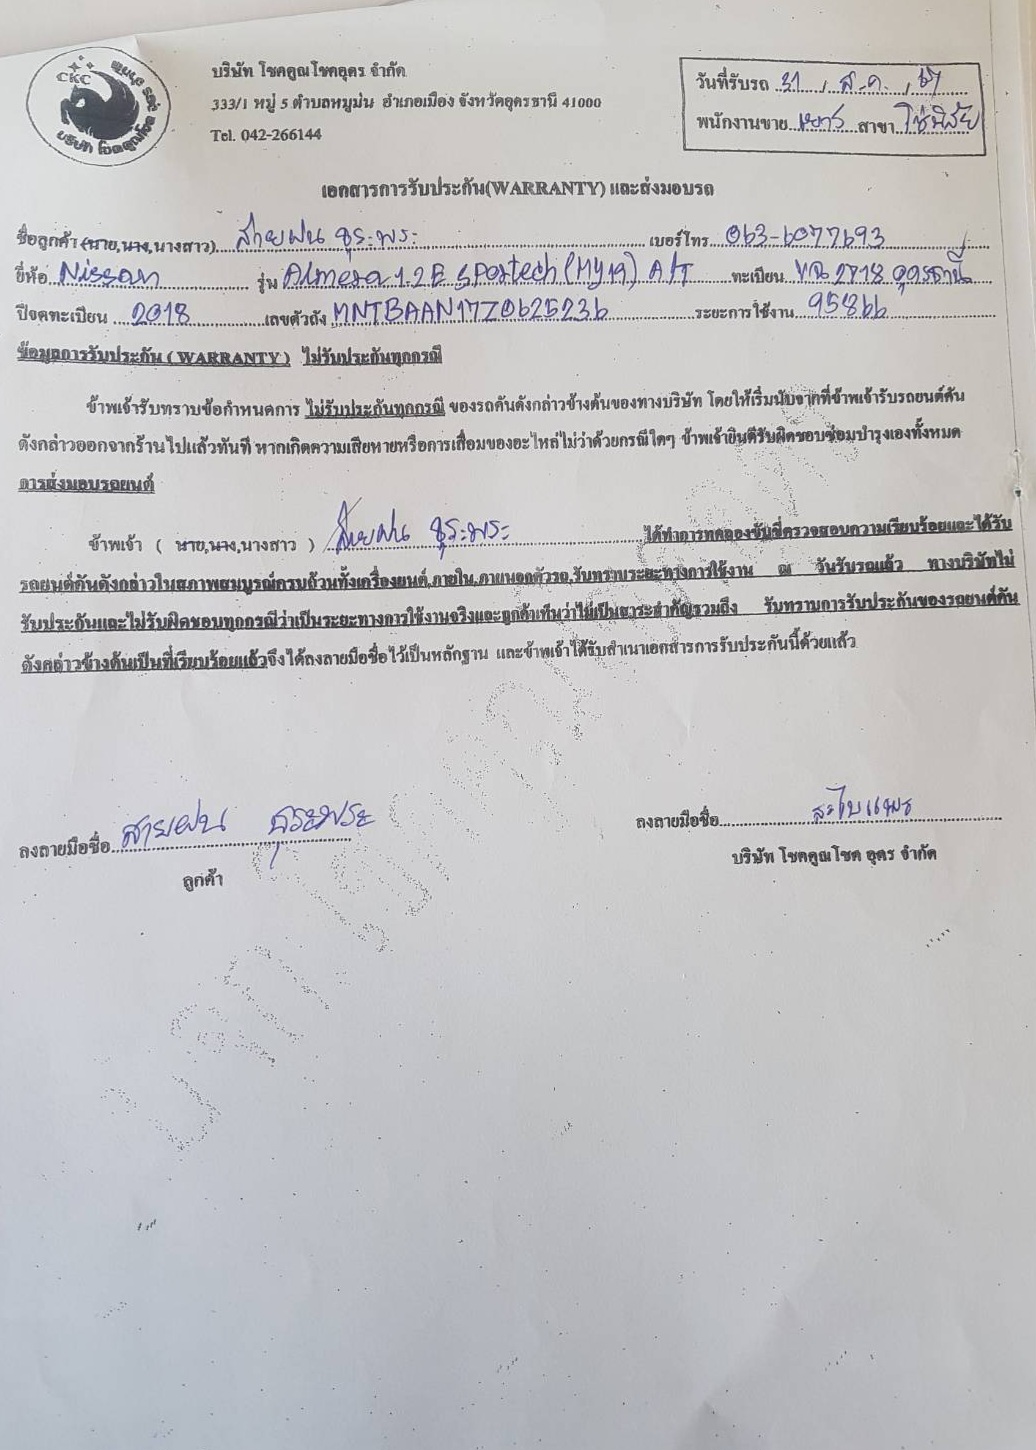 CKC
บริษัท โชคคูณโชคอุดร จำกัด
333/1 หมู่ 5 ตำบลหมูม่น อำเภอเมือง จังหวัดอุดรธานี 41000
Tel. 042-266144
วันที่รับรถ 31 / ส.ค. / 67
พนักงานขาย สาขา
เอกสารการรับประกัน(WARRANTY) และส่งมอบรถ
ชื่อลูกค้า (นาย,นาง,นางสาว) สายฝน ธุระพระ เบอร์โทร 063-6077693
ยี่ห้อ Nissan รุ่น Almera 1.2 E Sportech (MY19) A/T ทะเบียน 2718 อุดรธานี
ปีจดทะเบียน 2018 เลขตัวถัง MNTBAAN17Z0625236 ระยะการใช้งาน 95866
ข้อมูลการรับประกัน ( WARRANTY ) ไม่รับประกันทุกกรณี
ข้าพเจ้ารับทราบข้อกำหนดการ ไม่รับประกันทุกกรณี ของรถคันดังกล่าวข้างต้นของทางบริษัท โดยให้เริ่มนับจากที่ข้าพเจ้ารับรถยนต์คัน
ดังกล่าวออกจากร้านไปแล้วทันที หากเกิดความเสียหายหรือการเสื่อมของอะไหล่ไม่ว่าด้วยกรณีใดๆ ข้าพเจ้ายินดีรับผิดชอบซ่อมบำรุงเองทั้งหมด
การส่งมอบรถยนต์
ข้าพเจ้า ( นาย,นาง,นางสาว ) สายฝน ธุระพระ ได้ทำการทดลองขับขี่ตรวจสอบความเรียบร้อยและได้รับ
รถยนต์คันดังกล่าวในสภาพสมบูรณ์ครบถ้วนทั้งเครื่องยนต์,ภายใน,ภายนอกตัวรถ,รับทราบระยะทางการใช้งาน ณ วันรับรถแล้ว ทางบริษัทไม่
รับประกันและไม่รับผิดชอบทุกกรณีว่าเป็นระยะทางการใช้งานจริงและลูกค้าเห็นว่าไม่เป็นสาระสำคัญรวมถึง รับทราบการรับประกันของรถยนต์คัน
ดังกล่าวข้างต้นเป็นที่เรียบร้อยแล้วจึงได้ลงลายมือชื่อไว้เป็นหลักฐาน และข้าพเจ้าได้รับสำเนาเอกสารการรับประกันนี้ด้วยแล้ว
ลงลายมือชื่อ สายฝน ธุระพระ
ลูกค้า
ลงลายมือชื่อ
บริษัท โชคคูณโชค อุดร จำกัด